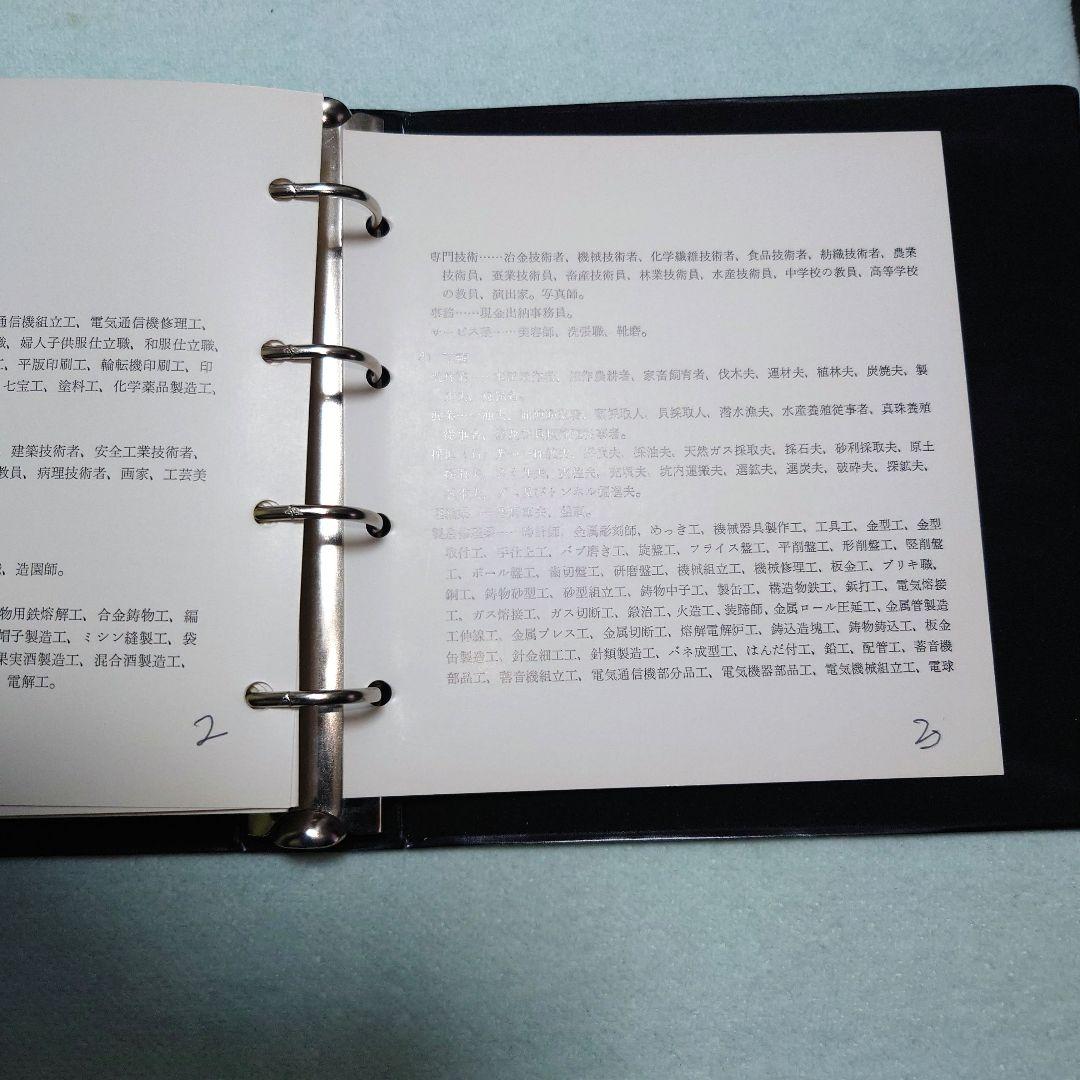 通信機組立工、電気通信機修理工、
婦人子供服仕立職、和服仕立職、
平版印刷工、輪転機印刷工、印
七宝工、塗料工、化学薬品製造工、
建築技術者、安全工業技術者、
教員、病理技術者、画家、工芸美
造園師。
物用鉄熔解工、合金鋳物工、編
帽子製造工、ミシン縫製工、袋
果実酒製造工、混合酒製造工、
電解工。
2
専門技術……冶金技術者、機械技術者、化学繊維技術者、食品技術者、紡織技術者、農業
技術員、蚕業技術員、畜産技術員、林業技術員、水産技術員、中学校の教員、高等学校
の教員、演出家。写真師。
事務……現金出納事務員。
サービス業……美容師、洗張職、靴磨。
農耕者、家畜飼育者、伐木夫、運材夫、植林夫、炭焼夫、製
採取人、貝採取人、潜水漁夫、水産養殖従事者、真珠養殖
従事者。
採油夫、天然ガス採取夫、採石夫、砂利採取夫、原土
充填夫、坑内運搬夫、選鉱夫、選炭夫、破砕夫、探鉱夫、
トンネル掘進夫。
製造修理業……時計師、金属彫刻師、めっき工、機械器具製作工、工具工、金型工、金型
取付工、手仕上工、バフ磨き工、旋盤工、フライス盤工、平削盤工、形削盤工、竪削盤
工、ボール盤工、歯切盤工、研磨盤工、機械組立工、機械修理工、板金工、ブリキ職、
銅工、鋳物砂型工、砂型組立工、鋳物中子工、製缶工、構造物鉄工、鋲打工、電気熔接
工、ガス熔接工、ガス切断工、鍛治工、火造工、装蹄師、金属ロール圧延工、金属管製造
工伸線工、金属プレス工、金属切断工、熔解電解炉工、鋳込造塊工、鋳物鋳込工、板金
缶製造工、針金細工工、針類製造工、バネ成型工、はんだ付工、鉛工、配管工、蓄音機
部品工、蓄音機組立工、電気通信機部分品工、電気機器部品工、電気機械組立工、電球
3